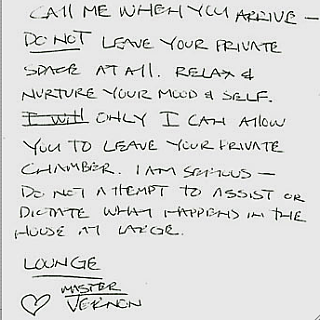 CALL ME WHEN YOU ARRIVE —
DO NOT LEAVE YOUR PRIVATE
SPACE AT ALL. RELAX &
NURTURE YOUR MOOD & SELF.
I will ONLY I CAN ALLOW
YOU TO LEAVE YOUR PRIVATE
CHAMBER. I AM SERIOUS —
DO NOT ATTEMPT TO ASSIST OR
DICTATE WHAT HAPPENS IN THE
HOUSE AT LARGE.
LOUNGE
♡ MASTER
VERNON